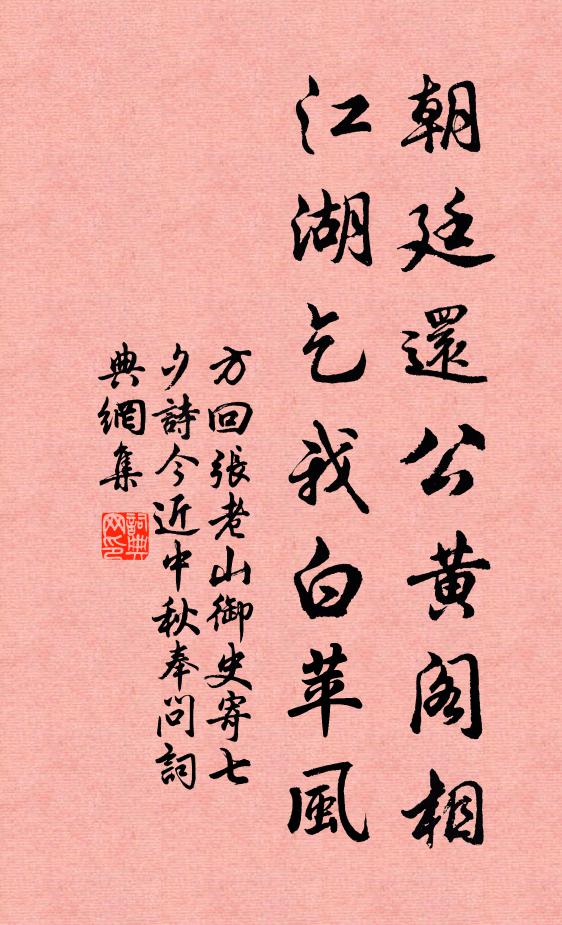 朝廷還公黃閣相
江湖乞我白苹風
方回張老山御史寄七
夕詩今近中秋奉問詞
典網集
詞典网印